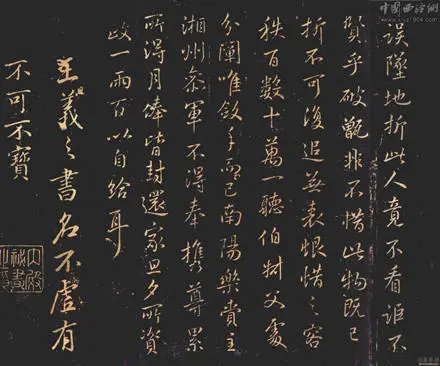 誤墜地折此人竟不看詎不
賢乎破甑非不惜此物既已
折不可復追無表恨惜之容
秩百數十萬一聽伯樹父處
分闔唯斂手而已南陽樂賣主
湘州參軍不得奉攜尊累
所得月俸皆封還家旦夕所資
政一兩百以自給耳
王羲之書名不虛有
不可不寶
內殿秘書之印